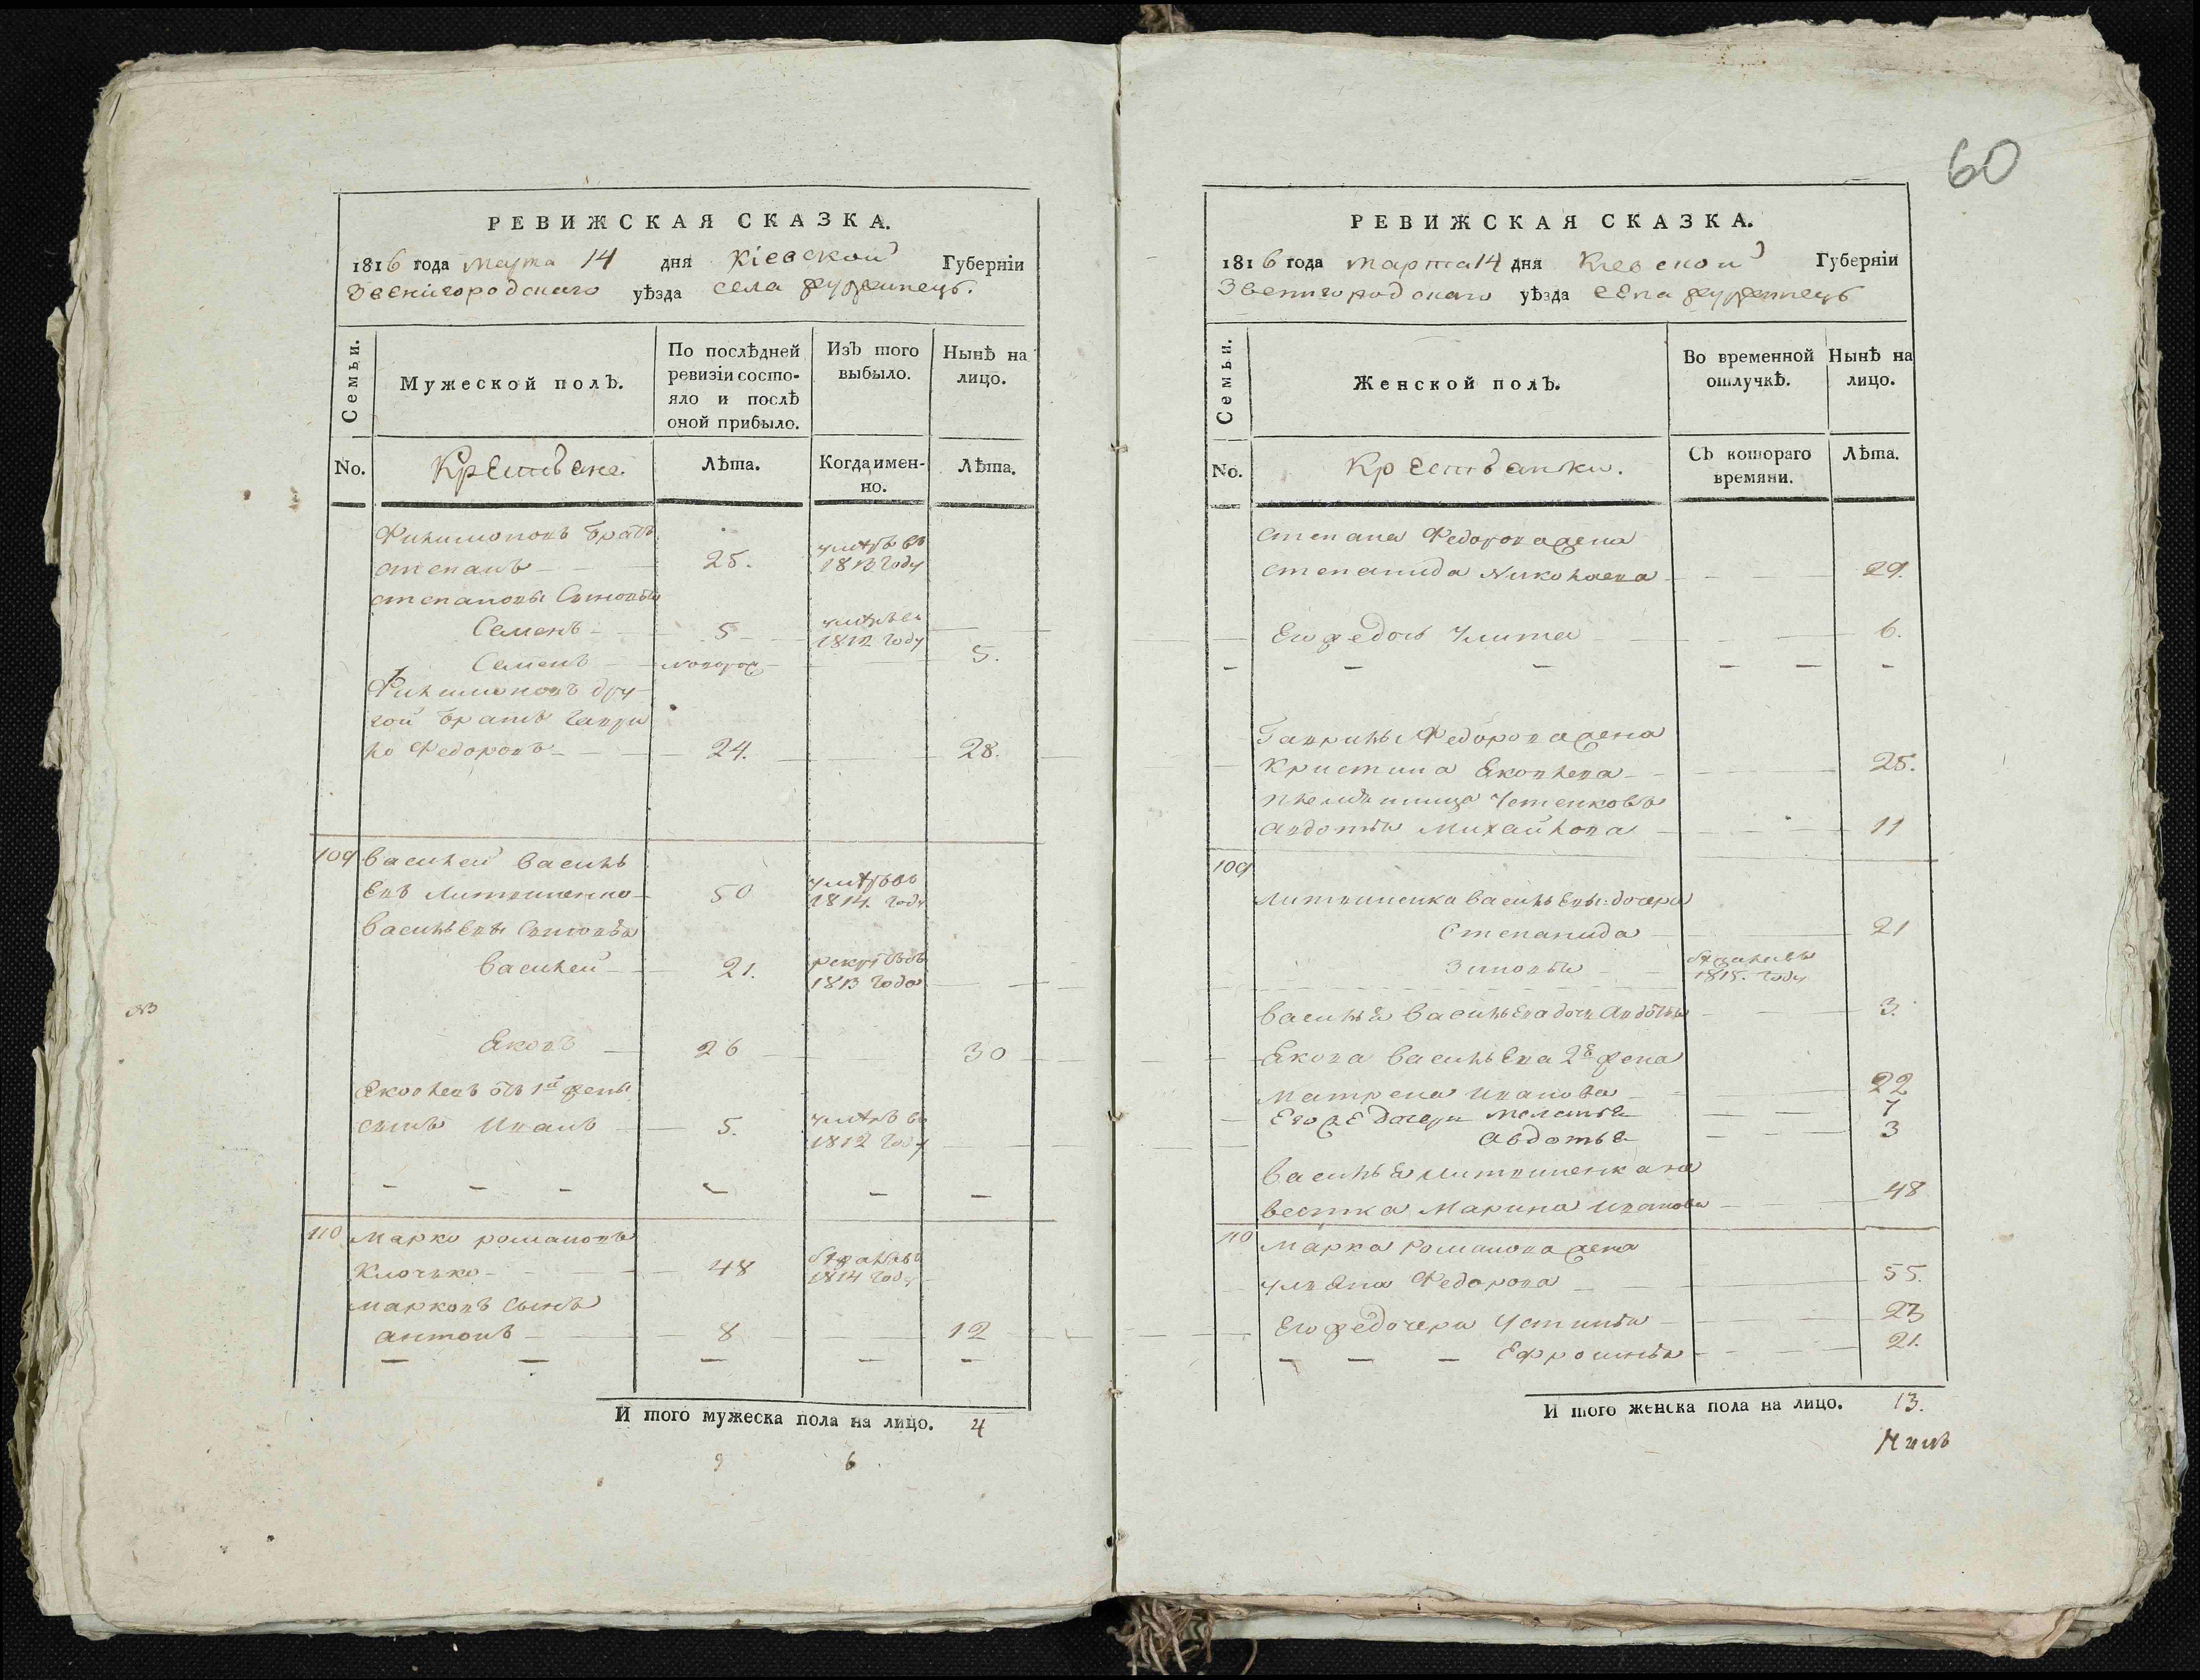 РЕВИЖСКАЯ СКАЗКА.
1816 года марта 14 дня Кіевской Губерніи
Звенигородскаго уѣзда села
Семьи.
Мужеской полъ.
По послѣдней
ревизіи состо-
яло и послѣ
оной прибыло.
Изъ того
выбыло.
Нынѣ на
лицо.
No.
Крестьяне.
Лѣта.
Когда имен-
но.
Лѣта.
Филимоновъ братъ
степанъ 25. умеръ во 1813 году
степановы Сыновья
Семенъ 5 умеръ во 1812 году
Семенъ новорож 5.
Филимоновъ дру-
гой братъ гаври
ло Федоровъ 24. 28.
109 василей василь
евъ Литвиненко 50 умеръ во 1814. году
васильевы Сыновья
василей 21. рекрутъ 1813 года
Яковъ 26 30
Яковлевъ отъ 1й жены
сынъ Иванъ 5. умеръ во 1812 году
110 марко романовъ
Клочько 48 1814 году
марковъ сынъ
антонъ 8 12
И того мужеска пола на лицо. 4
9 6
60
РЕВИЖСКАЯ СКАЗКА.
1816 года марта 14 дня Киевской Губерніи
Звенигородскаго уѣзда села
Семьи.
Женской полъ.
Во временной
отлучкѣ.
Нынѣ на
лицо.
No.
Крестьянки.
Съ котораго
времяни.
Лѣта.
степана Федорова жена
степанида Николаева 29.
Его же дочь Улита 6.
Гаврилы Федорова жена
Кристина Яковлева 25.
племяница
авдотья Михайлова 11
109
Литвиненка васильевы дочери
Степанида 21
Зиновья 1815. году
василья васильева дочь Авдотья 3.
Якова васильева 2я жена
матрена иванова 22
Его же дочери меланья 7
авдотья 3
василья литвиненка не
вестка Марина иванова 48
110 марка романова жена
ульяна Федорова 55.
Его же дочери Устинья 23
Ефросинья 21.
И того женска пола на лицо. 13.